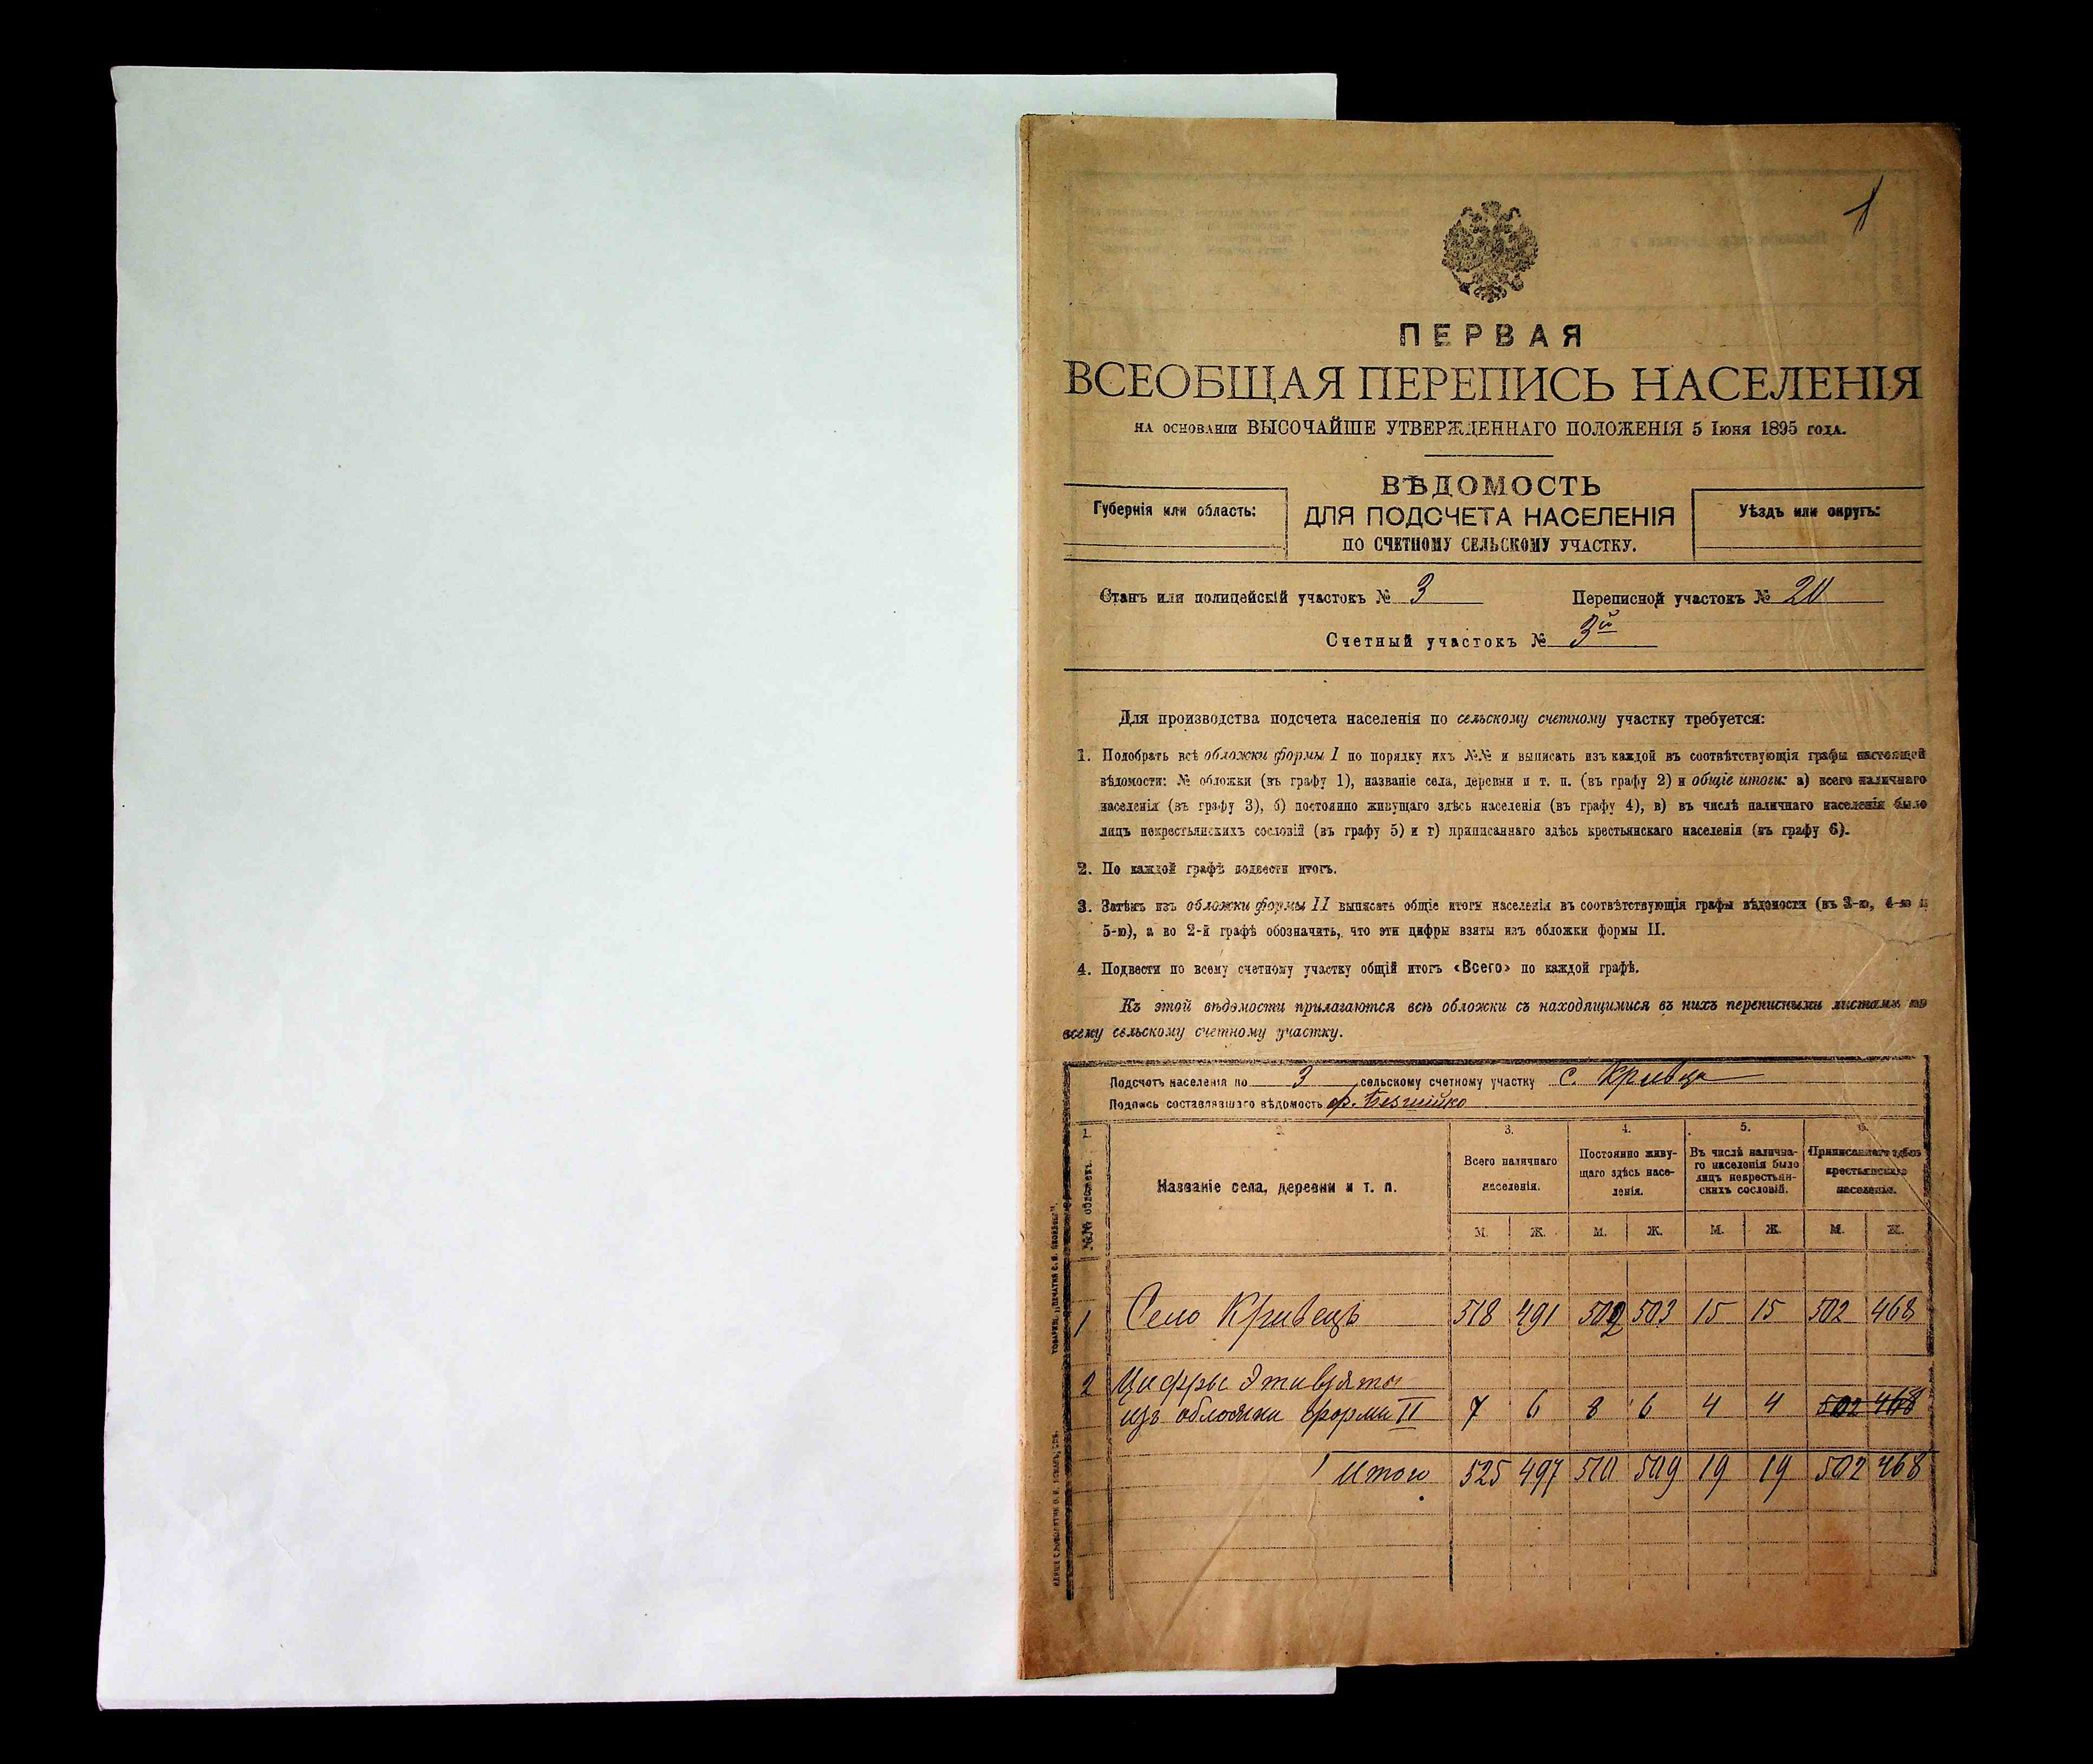 1
ПЕРВАЯ
ВСЕОБЩАЯ ПЕРЕПИСЬ НАСЕЛЕНІЯ
НА ОСНОВАНІИ ВЫСОЧАЙШЕ УТВЕРЖДЕННАГО ПОЛОЖЕНІЯ 5 Іюня 1895 года.
ВѢДОМОСТЬ
ДЛЯ ПОДСЧЕТА НАСЕЛЕНІЯ
ПО СЧЕТНОМУ СЕЛЬСКОМУ УЧАСТКУ.
Губернія или область:
Уѣздъ или округъ:
Станъ или полицейскій участокъ № 3 Переписной участокъ № 20
Счетный участокъ № 3й
Для производства подсчета населенія по сельскому счетному участку требуется:
1. Подобрать всѣ обложки формы I по порядку ихъ №№ и выписать изъ каждой въ соотвѣтствующія графы настоящей
вѣдомости: № обложки (въ графу 1), названіе села, деревни и т. п. (въ графу 2) и общіе итоги: а) всего наличнаго
населенія (въ графу 3), б) постоянно живущаго здѣсь населенія (въ графу 4), в) въ числѣ наличнаго населенія было
лицъ некрестьянскихъ сословій (въ графу 5) и г) приписаннаго здѣсь крестьянскаго населенія (въ графу 6).
2. По каждой графѣ подвести итогъ.
3. Затѣмъ изъ обложки формы II выписать общіе итоги населенія въ соотвѣтствующія графы вѣдомости (въ 3-ю, 4-ю и
5-ю), а во 2-й графѣ обозначить, что эти цифры взяты изъ обложки формы II.
4. Подвести по всему счетному участку общій итогъ «Всего» по каждой графѣ.
Къ этой вѣдомости прилагаются всѣ обложки съ находящимися въ нихъ переписными листами по
всему сельскому счетному участку.
Подсчетъ населенія по 3 сельскому счетному участку с. Кривца
Подпись составлявшаго вѣдомость
1. 2. 3. 4. 5. 6.
№№ обложекъ.
Названіе села, деревни и т. п.
Всего наличнаго
населенія.
Постоянно живу-
щаго здѣсь насе-
ленія.
Въ числѣ налична-
го населенія было
лицъ некрестьян-
скихъ сословій.
Приписаннаго здѣсь
крестьянскаго
населенія.
М. Ж. М. Ж. М. Ж. М. Ж.
1 Село Кривецъ 518 491 502 503 15 15 502 468
2 Цифры эти взяты
изъ обложки формы II 7 6 8 6 4 4 502 468
Итого 525 497 510 509 19 19 502 468